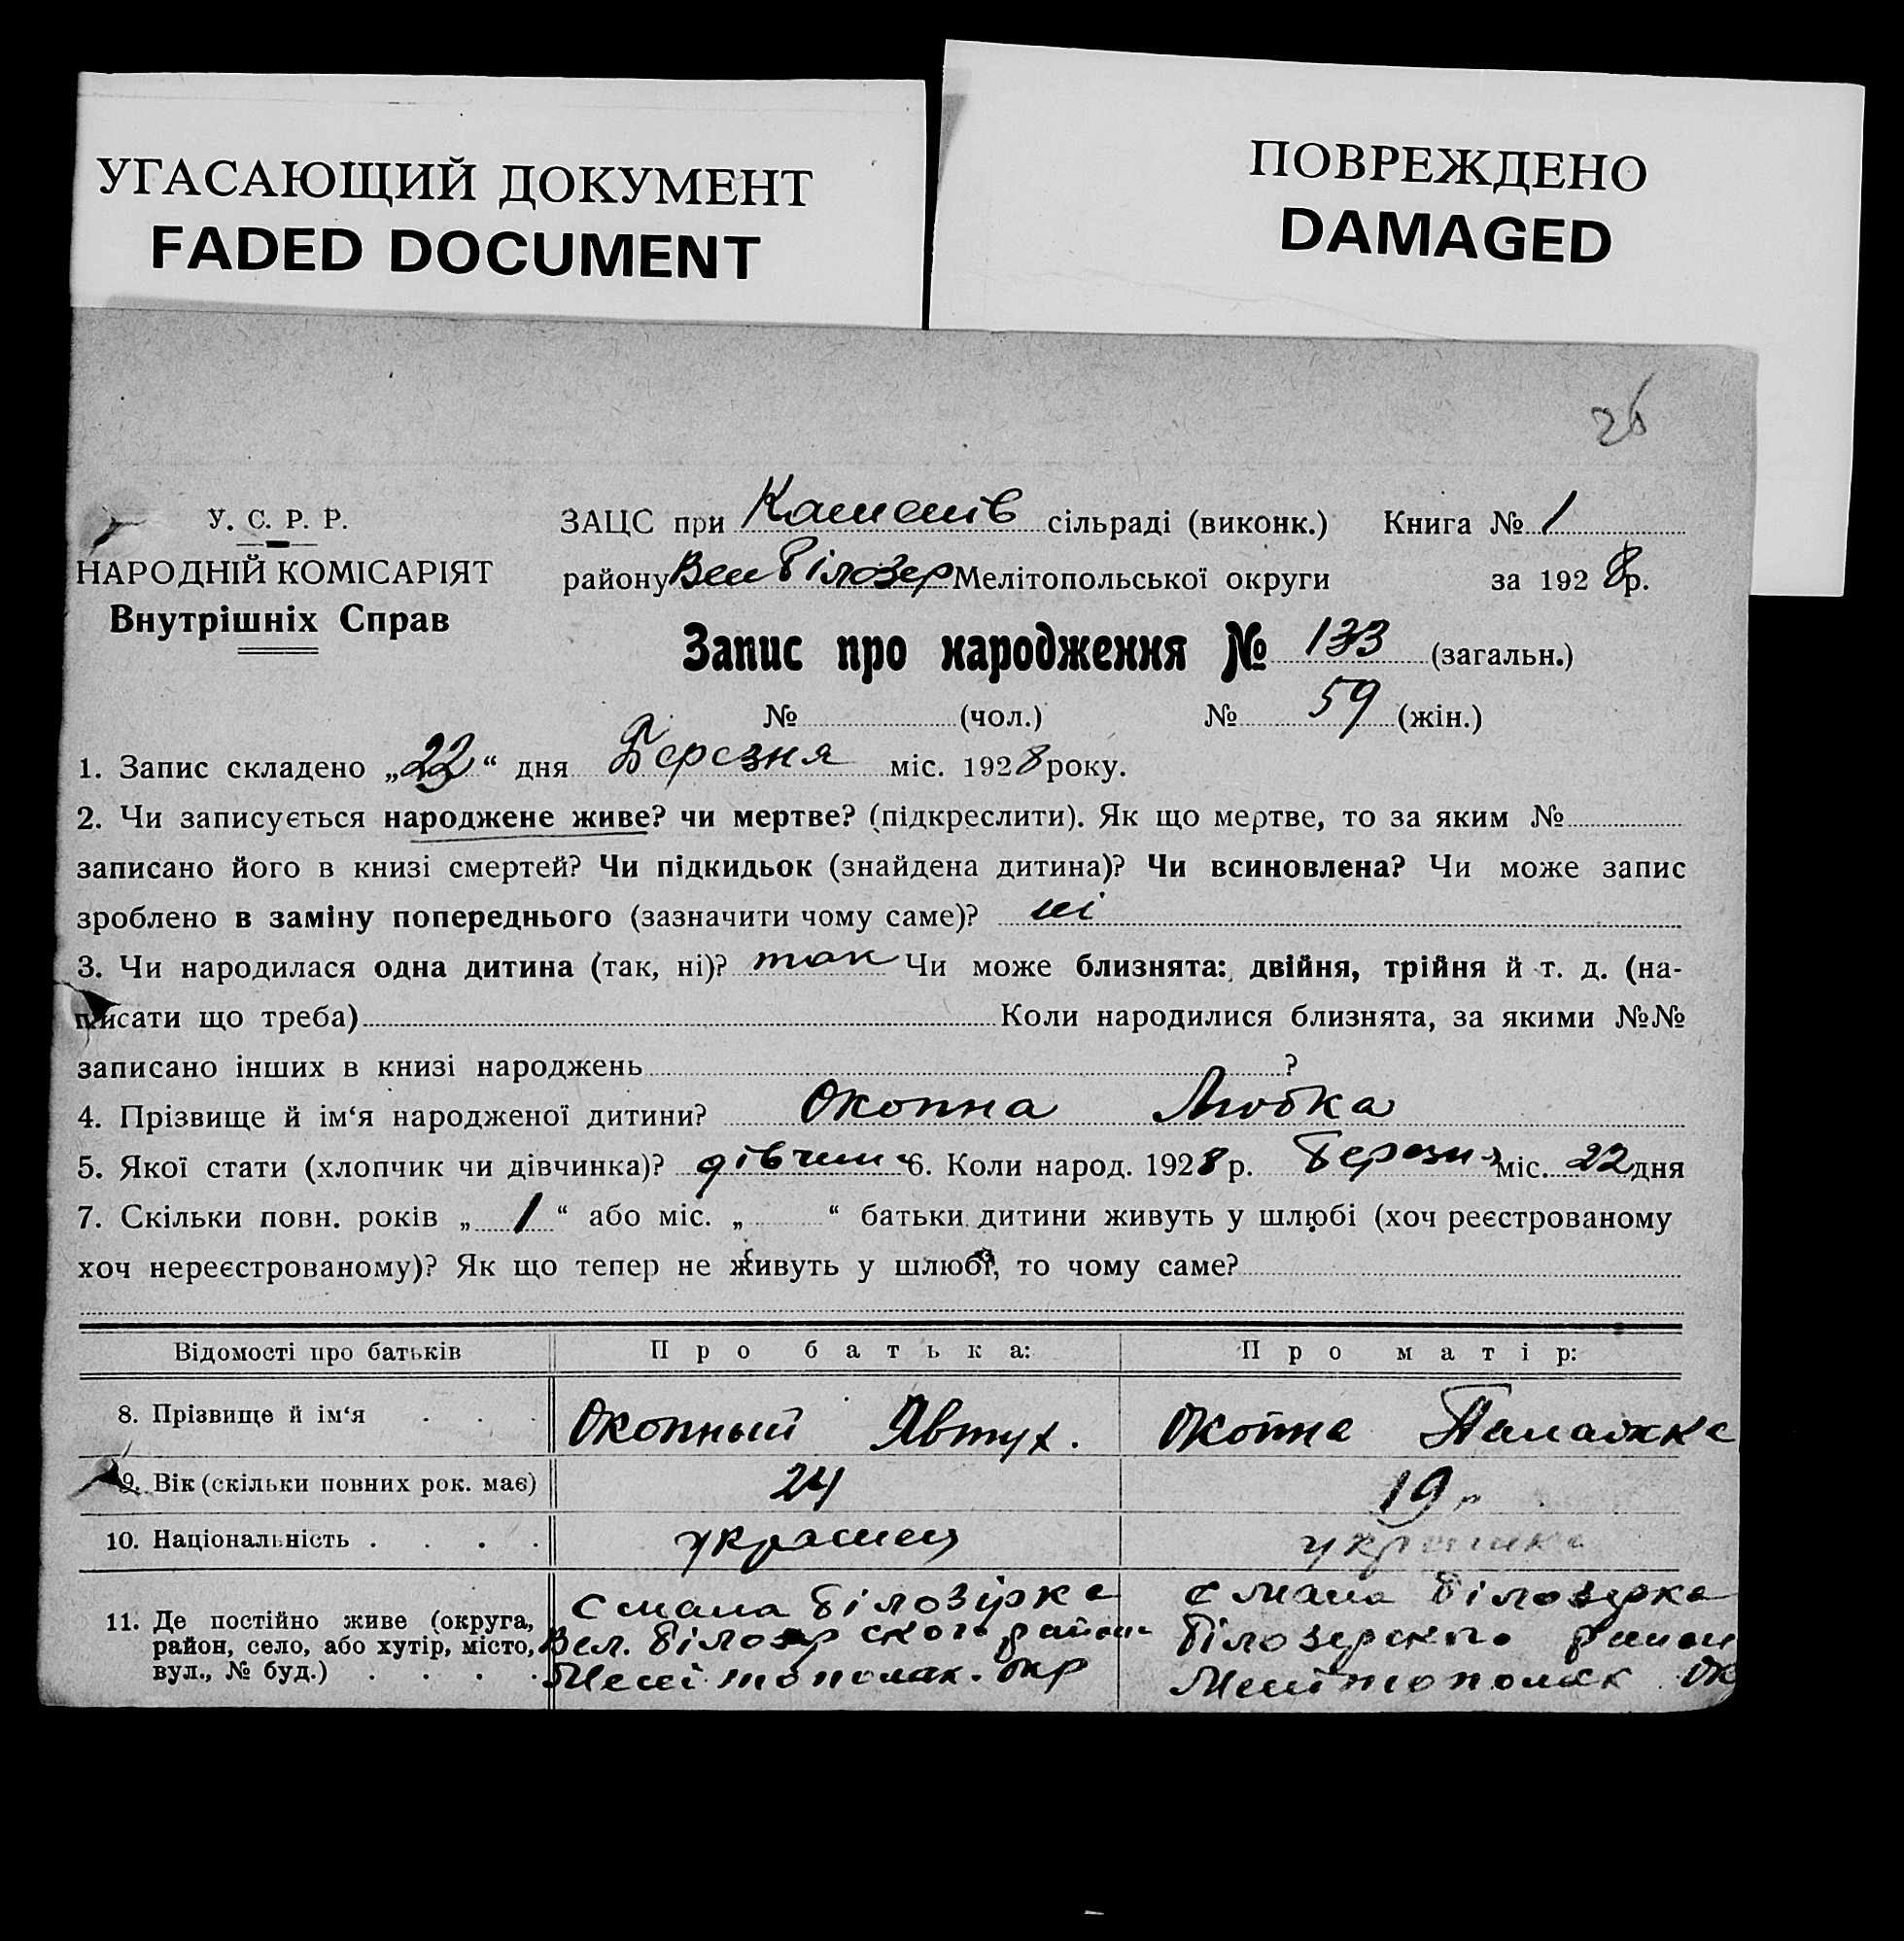 УГАСАЮЩИЙ ДОКУМЕНТ
FADED DOCUMENT
ПОВРЕЖДЕНО
DAMAGED
26
У. С. Р. Р.
НАРОДНІЙ КОМІСАРІЯТ
Внутрішніх Справ
ЗАЦС при сільраді (виконк.) Книга № 1
району Вел Білозер Мелітопольської округи за 1928 р.
Запис про народження № 133 (загальн.)
№ (чол.) № 59 (жін.)
1. Запис складено „22“ дня Березня міс. 1928 року.
2. Чи записується народжене живе? чи мертве? (підкреслити). Як що мертве, то за яким №
записано його в книзі смертей? Чи підкидьок (знайдена дитина)? Чи всиновлена? Чи може запис
зроблено в заміну попереднього (зазначити чому саме)? ні
3. Чи народилася одна дитина (так, ні)? так Чи може близнята: двійня, трійня й т. д. (на-
писати що треба) Коли народилися близнята, за якими №№
записано інших в книзі народжень ?
4. Прізвище й ім‘я народженої дитини? Окопна Любка
5. Якої стати (хлопчик чи дівчинка)? дівчин 6. Коли народ. 1928 р. Березня міс. 22 дня
7. Скільки повн. років „ 1 “ або міс. „ “ батьки дитини живуть у шлюбі (хоч реєстрованому
хоч нереєстрованому)? Як що тепер не живуть у шлюбі, то чому саме?
Відомості про батьків Про батька: Про матір:
8. Прізвище й ім‘я . . . Окопный Явтух. Окопна
9. Вік (скільки повних рок. має) 24 19 р
10. Національність . . . . украинец украинка
11. Де постійно живе (округа,
район, село, або хутір, місто,
вул., № буд.) . . . .
С мала Білозірка
Вел. Білозерского район
Мелітопольск. окр
С мала Білозерка
Білозерского район
Мелітопольск ок